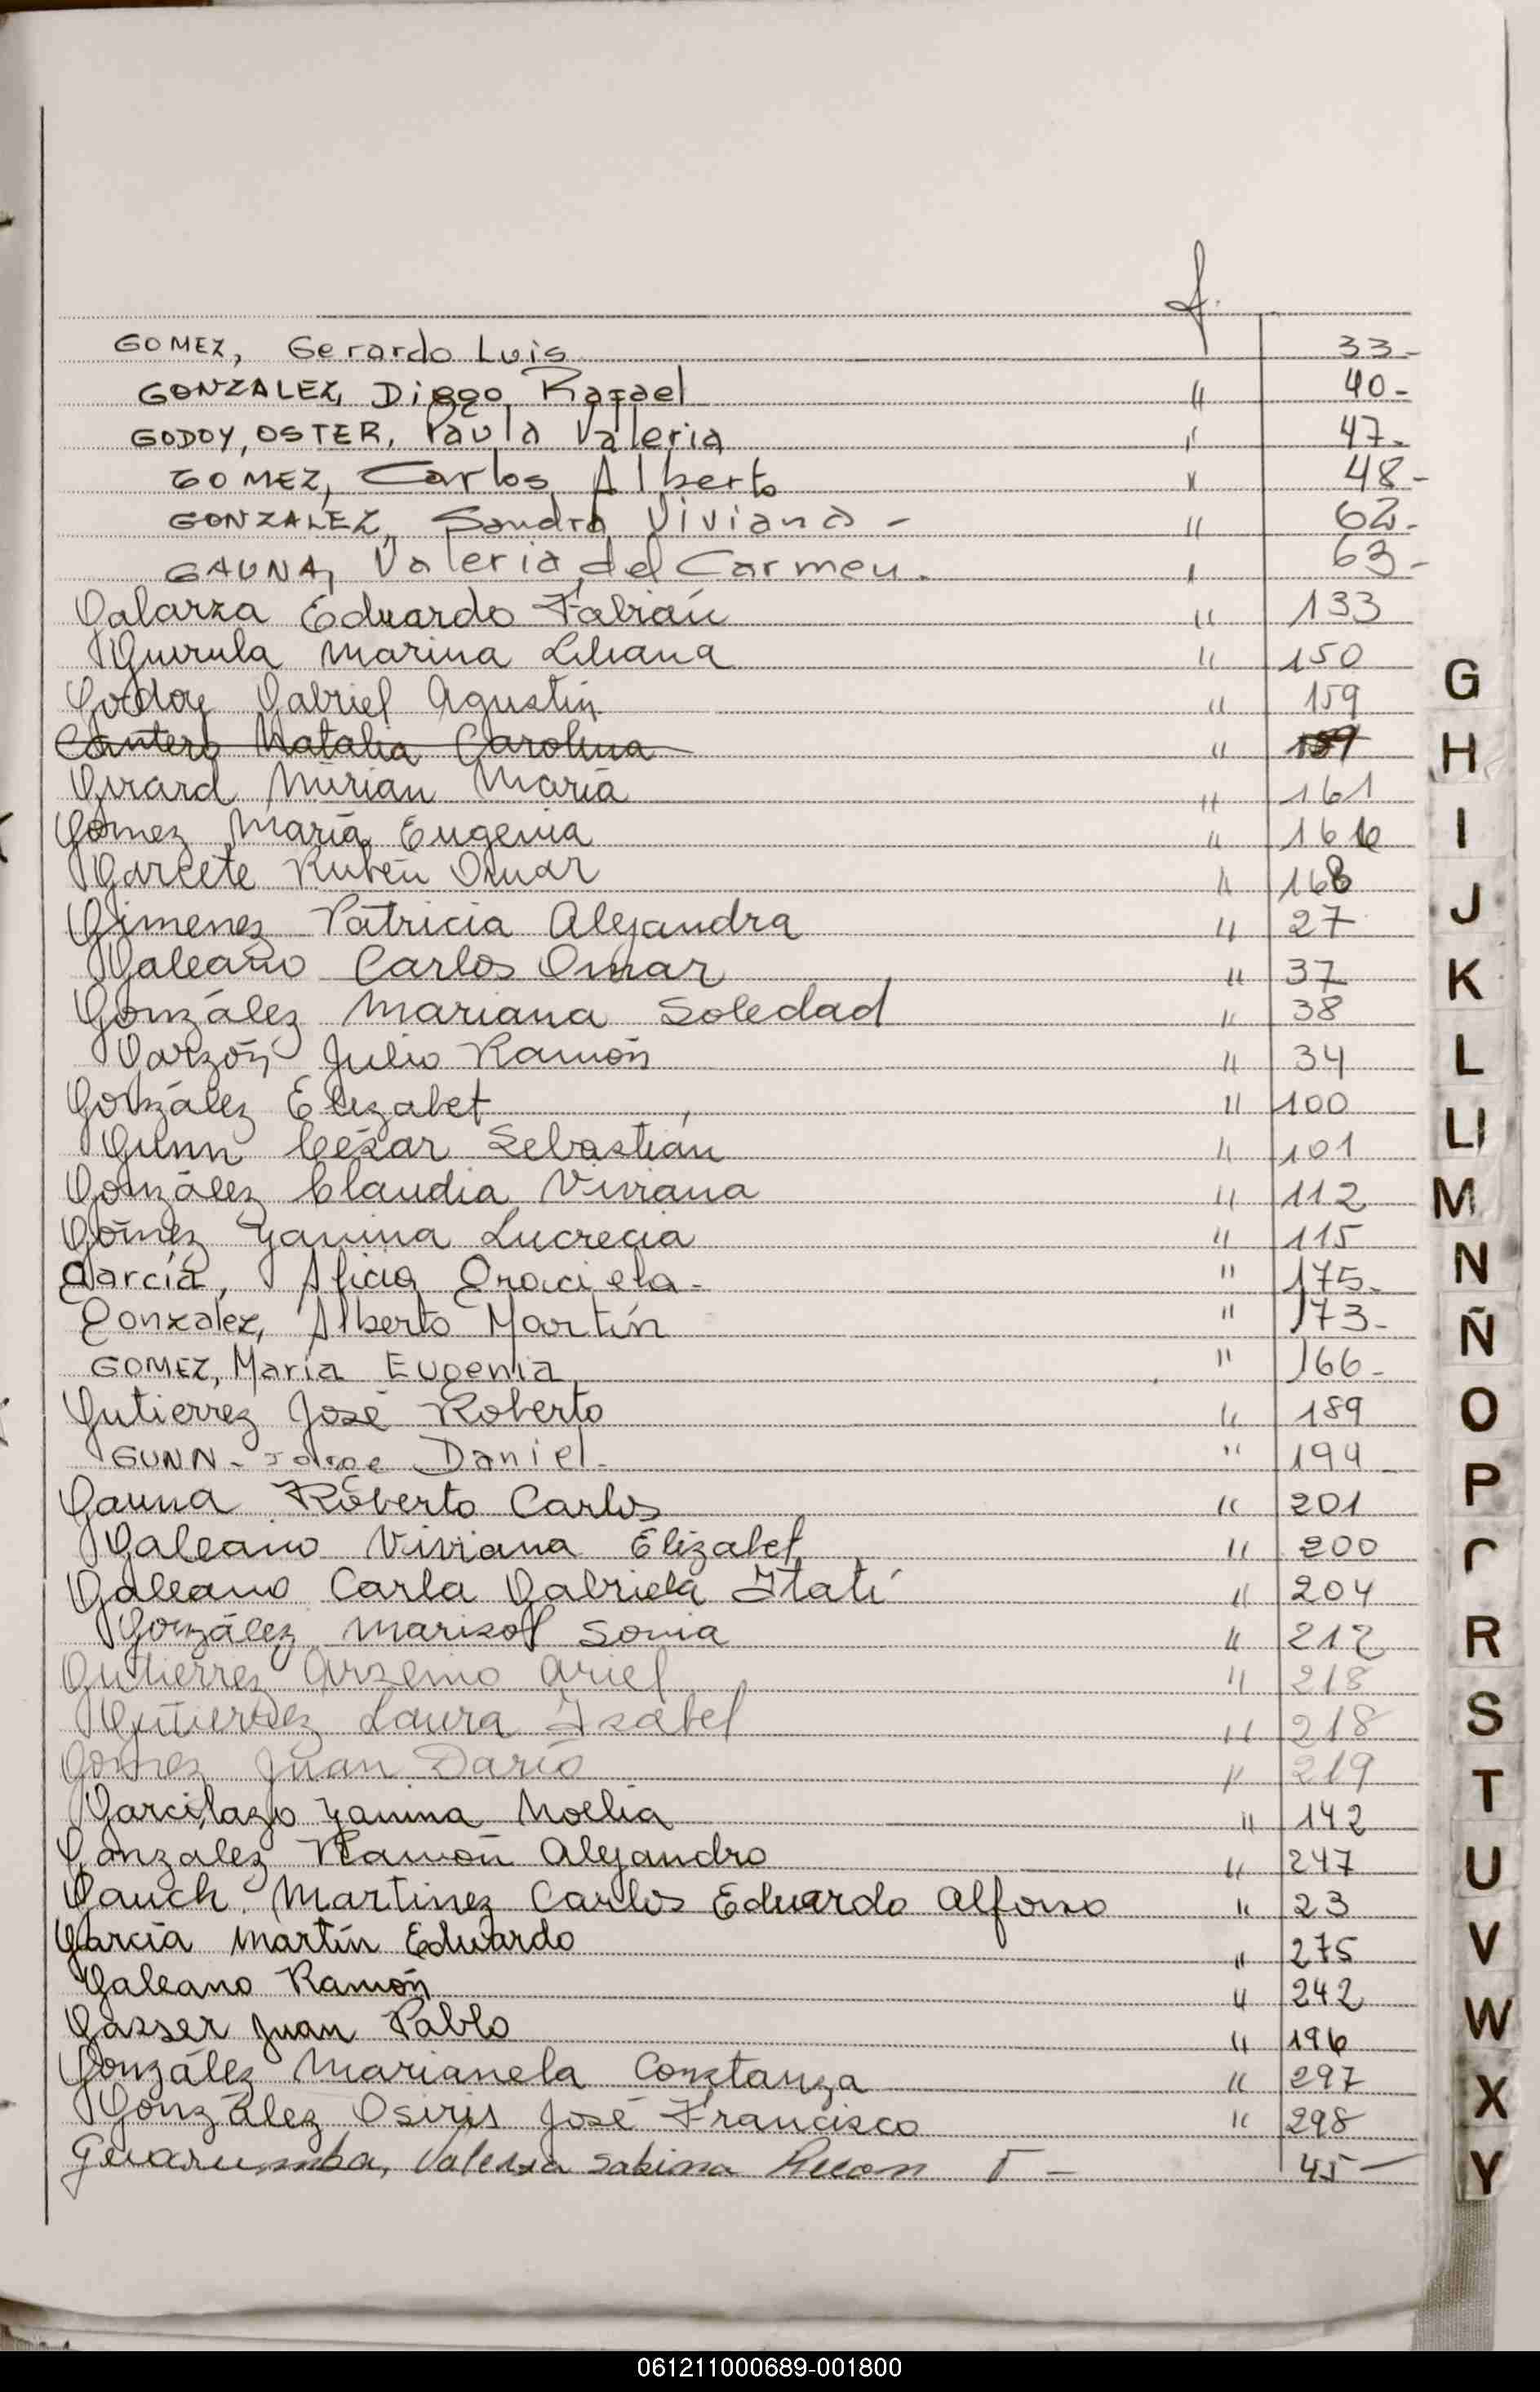 f.
GOMEZ, Gerardo Luis 33-
GONZALEZ, Diego Rafael " 40-
GODOY, OSTER, Paula Valeria " 47-
GOMEZ, Carlos Alberto " 48-
GONZALEZ, Sandra Viviana - " 62-
GAUNA, Valeria del Carmen. " 63-
Galarza Eduardo Fabián " 133
Guirula Marina Liliana " 150
Godoy Gabriel Agustín " 159
Cantero Natalia Carolina "
Girard Mirian María " 161
Gómez María Eugenia " 166
Garcete Rubén Omar " 168
Gimenez Patricia Alejandra " 27
Galeano Carlos Omar " 37
González Mariana Soledad " 38
Garzón Julio Ramón " 34
González Elizabet " 100
Gunn César Sebastián " 101
González Claudia Viviana " 112
Gómez Yanina Lucrecia " 115
García, Alicia Graciela- " 175-
Gonzalez, Alberto Martín " 173-
GOMEZ, María Eugenia " 166-
Gutierrez José Roberto " 189
GUNN - Jorge Daniel- " 194
Gauna Roberto Carlos " 201
Galeano Viviana Elizabet " 200
Galeano Carla Gabriela Itatí " 204
González Marisol Sonia " 212
Gutierrez Arsenio Ariel " 218
Gutierrez Laura Isabel " 218
Gomez Juan Darío " 219
Garcilazo Yanina Noelia " 142
Gonzalez Ramón Alejandro " 247
Gauch Martinez Carlos Eduardo Alfonso " 23
García Martín Eduardo " 275
Galeano Ramón " 242
Gasser Juan Pablo " 196
González Marianela Constanza " 297
González Osiris José Francisco " 298
Valeria Sabina - 45-
G
H
I
J
K
L
Ll
M
N
Ñ
O
P
R
S
T
U
V
W
X
Y
061211000689-001800